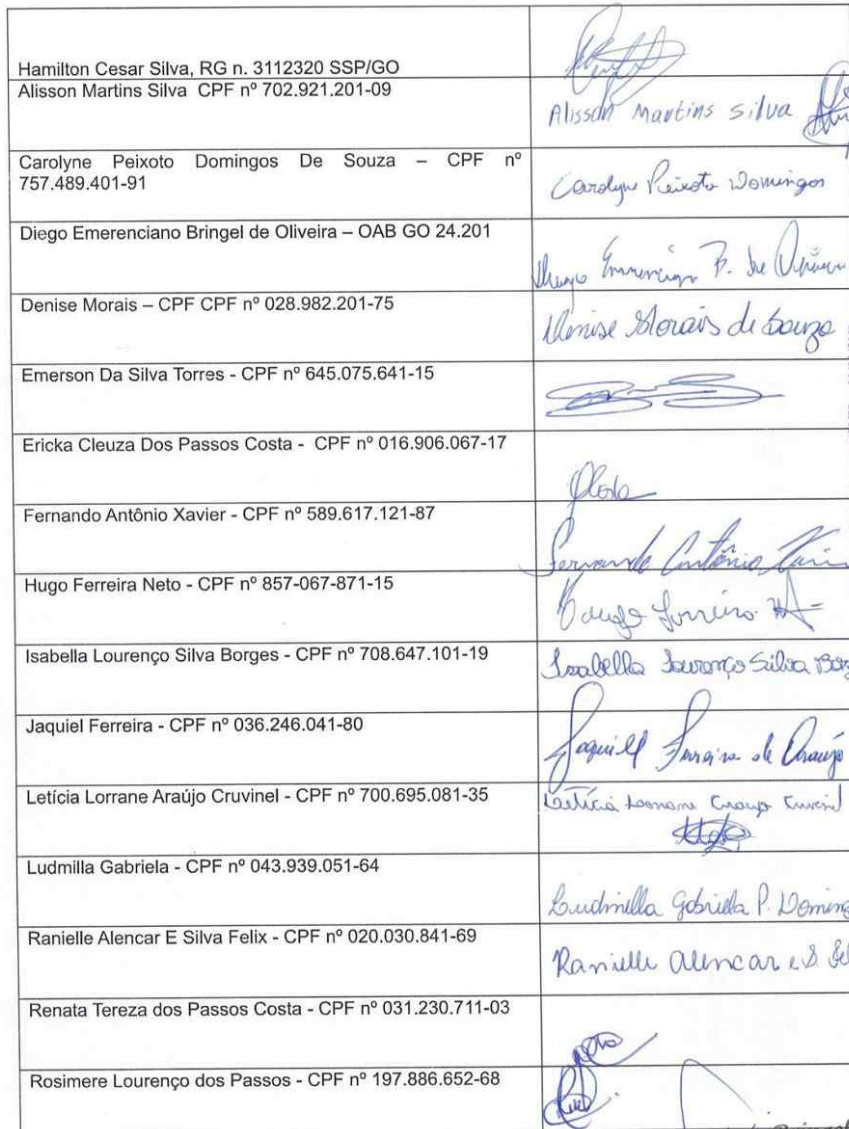 Hamilton Cesar Silva, RG n. 3112320 SSP/GO
Alisson Martins Silva CPF nº 702.921.201-09
Alisson Martins Silva
Carolyne Peixoto Domingos De Souza – CPF nº
757.489.401-91
Carolyne Peixoto Domingos
Diego Emerenciano Bringel de Oliveira – OAB GO 24.201
Denise Morais – CPF CPF nº 028.982.201-75
Denise Morais de Souza
Emerson Da Silva Torres - CPF nº 645.075.641-15
Ericka Cleuza Dos Passos Costa - CPF nº 016.906.067-17
Fernando Antônio Xavier - CPF nº 589.617.121-87
Fernando Antônio
Hugo Ferreira Neto - CPF nº 857-067-871-15
Isabella Lourenço Silva Borges - CPF nº 708.647.101-19
Isabella Lourenço Silva
Jaquiel Ferreira - CPF nº 036.246.041-80
Jaquiel Ferreira de Araújo
Letícia Lorrane Araújo Cruvinel - CPF nº 700.695.081-35
Letícia Lorrane Araujo Cruvinel
Ludmilla Gabriela - CPF nº 043.939.051-64
Ludmilla Gabriela P.
Ranielle Alencar E Silva Felix - CPF nº 020.030.841-69
Ranielle Alencar e S.
Renata Tereza dos Passos Costa - CPF nº 031.230.711-03
Rosimere Lourenço dos Passos - CPF nº 197.886.652-68